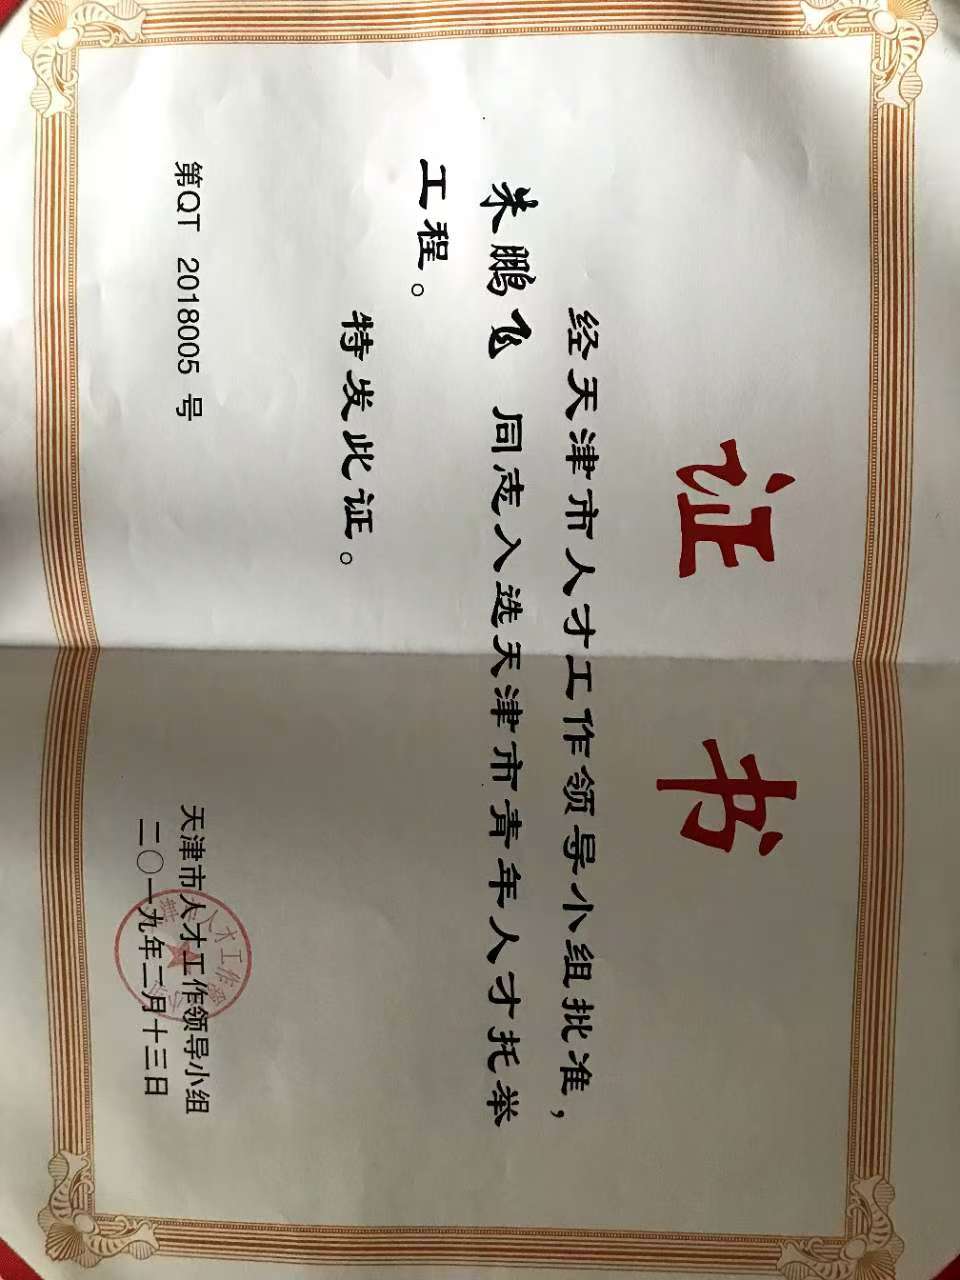 证书
经天津市人才工作领导小组批准，
朱鹏飞 同志入选天津市青年人才托举
工程。
特发此证。
第QT 2018005 号
天津市人才工作领导小组
二〇一九年二月十三日